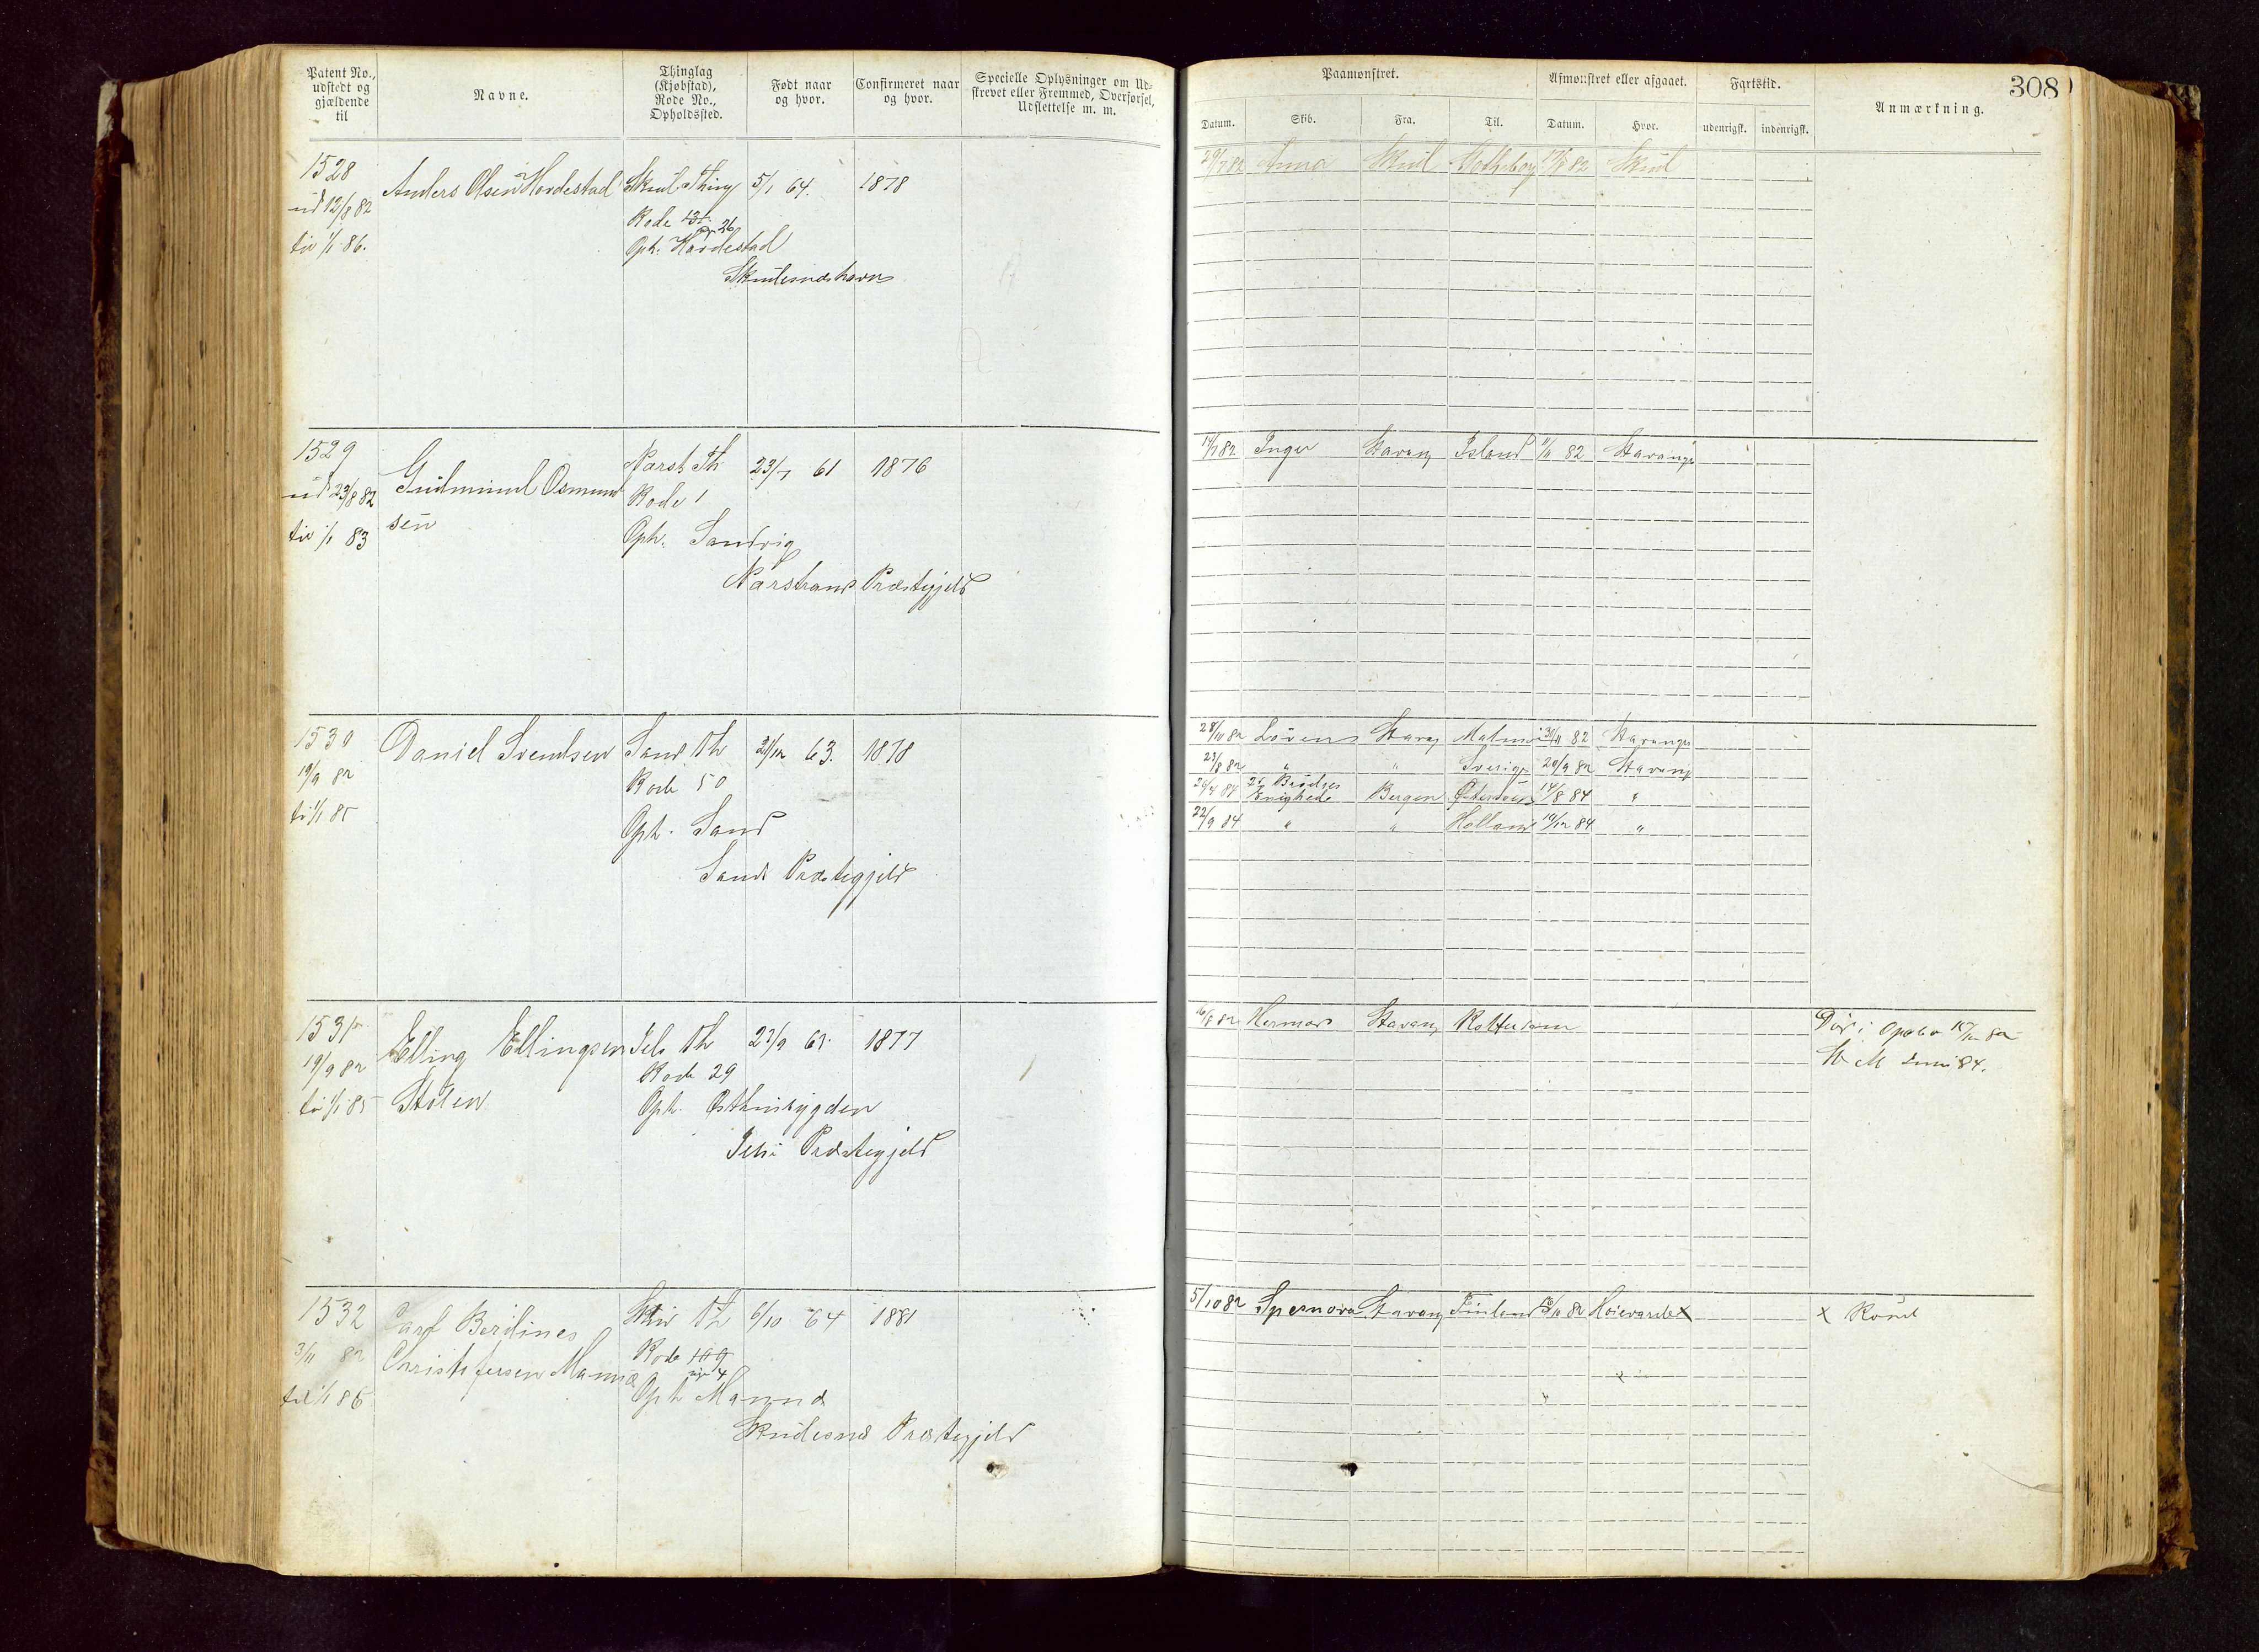 Patent No.,
udstedt og
gjældende
til
Navne.
Thinglag
(Kjøbstad),
Rode No.,
Opholdssted.
Født naar
og hvor.
Confirmeret naar
og hvor.
Specielle Oplysninger om Ud-
skrevet eller Fremmed, Overførsel,
Udslettelse m. m.
1528
ud 12/8 82
til 1/1 86.
Anders Olsen Hordestad
Skud Thing
Rode 131 26
Oph. Hordestad
Skudesneshavn
5/1 64.
1878
1529
ud 23/8 82
til 1/1 83
Gudmund Osmund
sen
Narst Th.
Rode 1
Oph. Sandvig
Narstrand Præstegjeld
23/7 61
1876
1530
19/9 82
til 1/1 85
Daniel Svendsen
Sand Th
Rode 50
Oph. Sand
Sands Præstegjeld
31/12 63.
1878
1531
19/9 82
til 1/1 85
Elling Ellingsen
Stølen
Jels Th
Rode 29
Oph. Østhusbygden
Jelsø Præstegjeld
23/9 63.
1877
1532
3/11 82
til 1/1 86
Carl Berdines
Christofersen Mannæs
Skud Th
Rode 109
4
Oph Mannæs
Skudesnæs Præstegjeld
6/10 64
1881
308
Paamønstret.
Afmønstret eller afgaaet.
Fartstid.
Anmærkning.
Datum.
Skib.
Fra.
Til.
Datum.
Hvor.
udenrigsk.
indenrigsk.
29/7 82 Anna Skud Gotheborg 17/8 82 Skud
14/7 82 Inger Stavang Island 11/11 82 Stavanger
28/10 82 Løven Stavang Malmø 30/11 82 Stavanger
23/8 82 " " Sverige 20/9 82 Stavang
29/4 84 2de Brødres
Enighed Bergen Østersøen 14/8 84 "
22/9 84 " " Holland 19/12 84 "
16/8 82 Hermod Stavang Rotterdam
Død i Opobo 15/12 82
St. M Juni 84.
5/10 82 Spernova Stavang Finland 16/11 82 Høievarde x
x Rømt